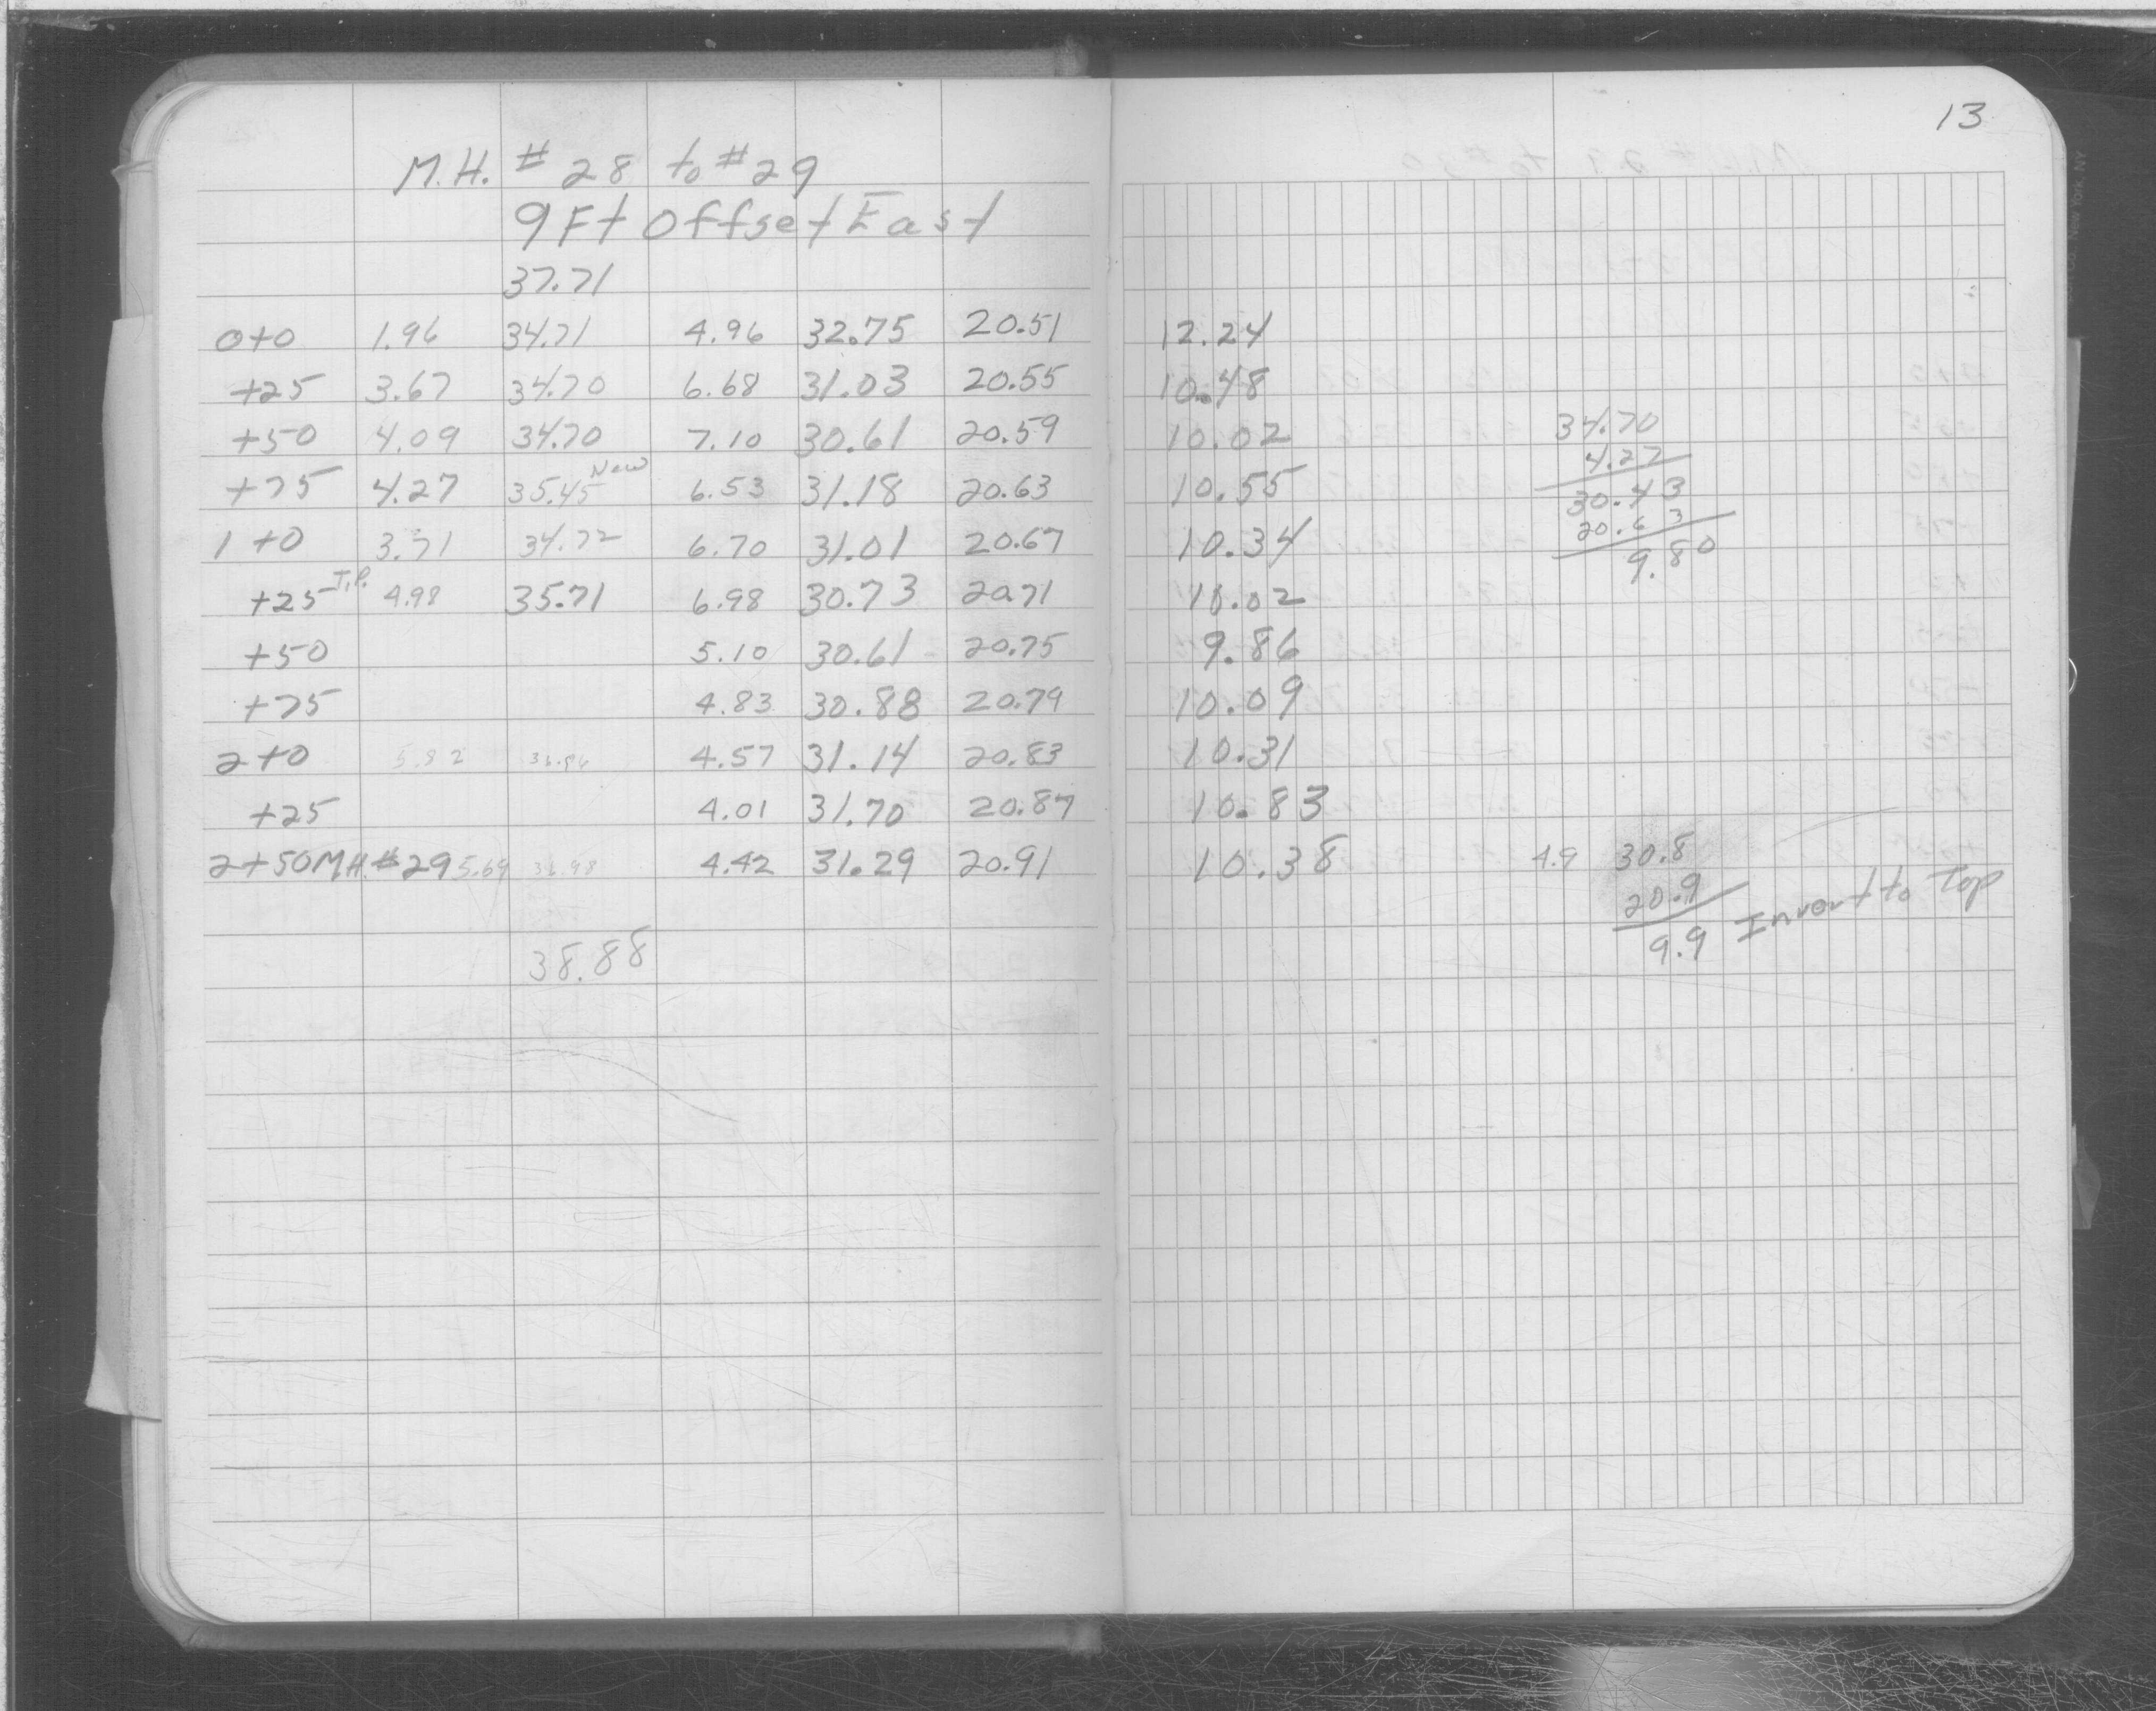 13
M.H. # 28 to # 29
9 Ft Offset East
37.71
0+0 1.96 34.71 4.96 32.75 20.51 12.24
+25 3.67 34.70 6.68 31.03 20.55 10.48
+50 4.09 34.70 7.10 30.61 20.59 10.02
+75 4.27 35.45 New 6.53 31.18 20.63 10.55
1+0 3.71 34.72 6.70 31.01 20.67 10.34
+25 T.P. 4.98 35.71 6.98 30.73 20.71 10.02
+50 5.10 30.61 20.75 9.86
+75 4.83 30.88 20.79 10.09
2+0 5.82 4.57 31.14 20.83 10.31
+25 4.01 31.70 20.87 10.83
2+50 M.H. #29 5.69 4.42 31.29 20.91 10.38
38.88
34.70
4.27
30.43
20.63
9.80
4.9 30.8
20.9
9.9 Invert to Top